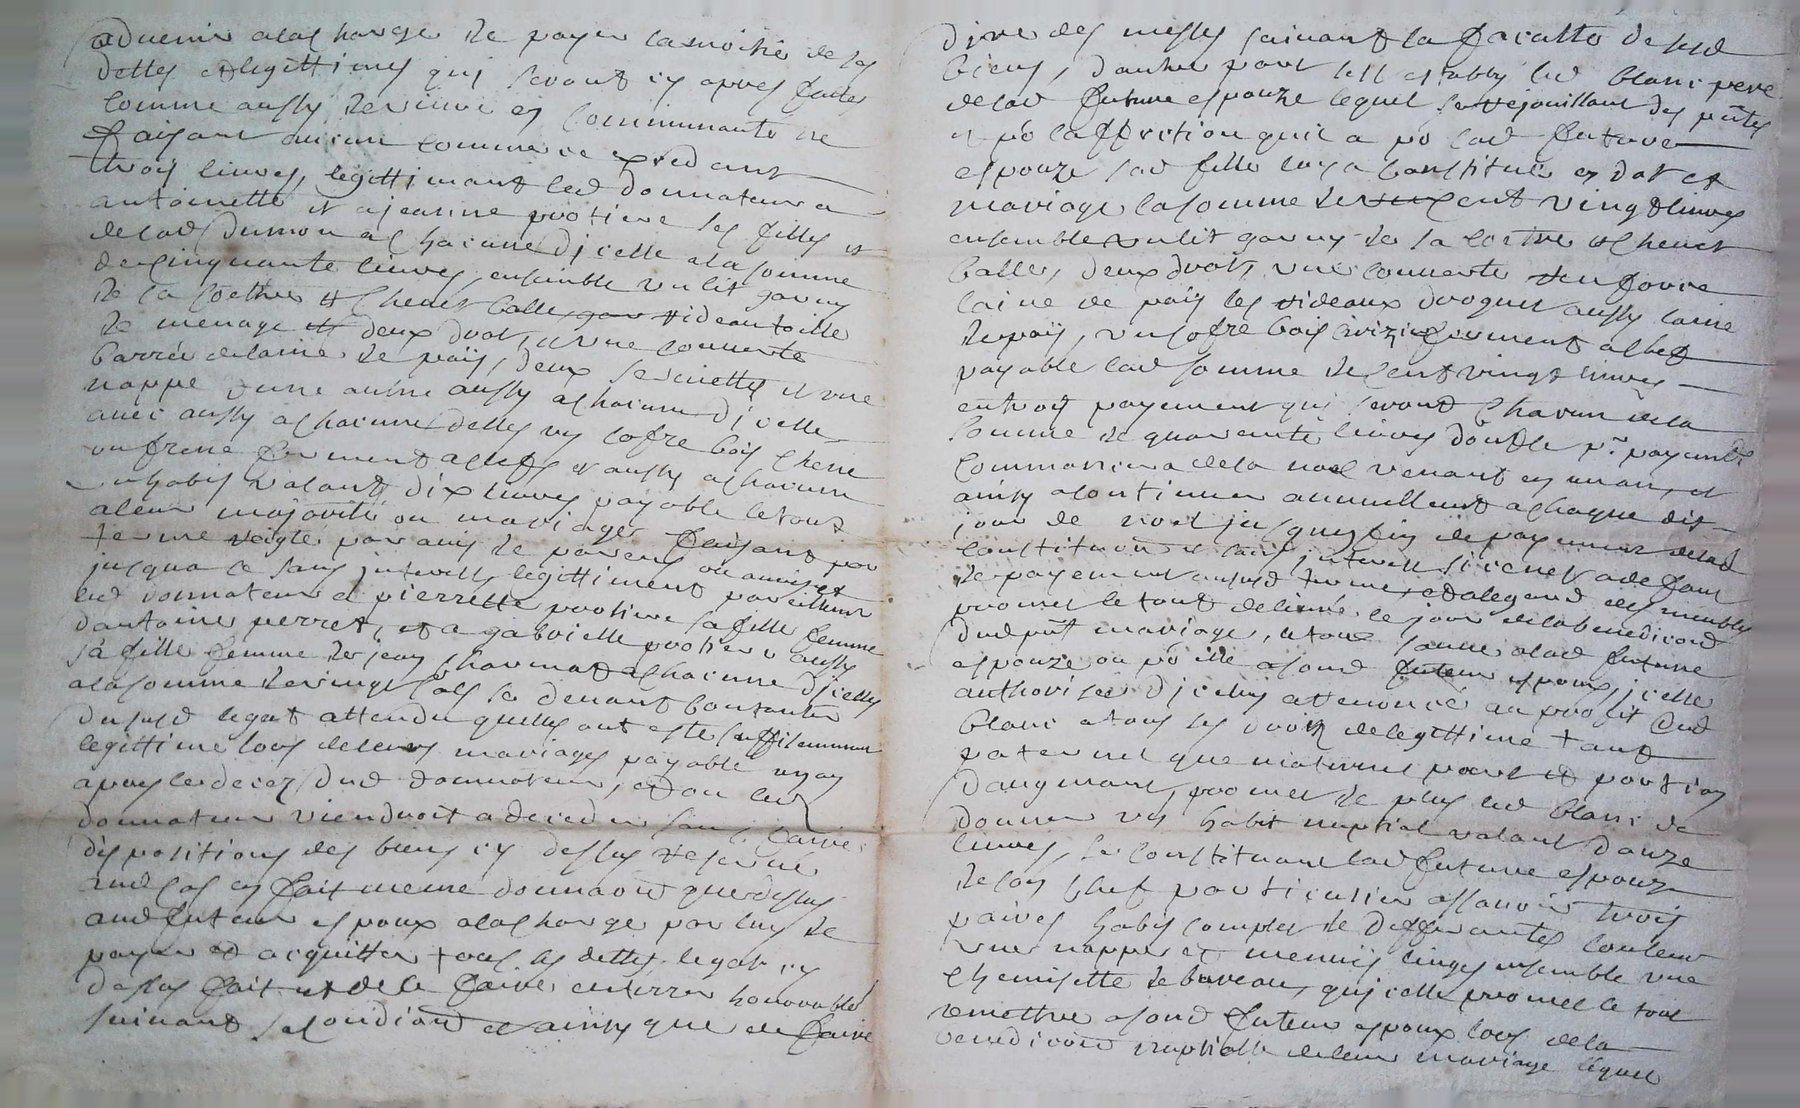 aduenir alacharge de payer lamoitié de ses
dettes et legittimes qui seront cy apres faites
comme aussy de viure en communauté ne
faisant aucun commerce excedant
trois liures, legittimant led donnateur a
antoinette et ajeanne protiere ses filles et
delad dumon a chacune dicelle alasomme
de cinquante liures, ensemble vn lit garny
de sa coettre et cheuet balle, rideau toille
de menage deux draps, et vne couuerte
barrée delaine de païs, deux seruiettes et vne
nappe dune aulne aussy a chacune dicelle
auec aussy a chacune delles vn cofre bois chene
ou frene ferment a clefs et aussy a chacune
vn habis valant dix liures payable letout
aleur majorité ou mariages faisant par
terme reigle par auis de parens ou amis et
jusqua ce sans interests, legittiment pareillement
led donnateur a pierrette protiere sa fille femme
dantoine perret, et a gabrielle protiere aussy
sa fille femme de jean charmat a chacune dicelles
alasomme de vingt sols se deuant contenter
dusud legat attendu quelles ont esté suffisamment
legittime lors deleurs mariages payable vn an
apres le decez dud donnateur, et ou led
donnateur viendroit a deceder sans faire
dispositions des biens cy dessus reserué
aud cas en fait meme donnaõn que dessus
aud futeur espoux alacharge par luy de
payer et acquitter tous les dettes, legats cy
dessus fait et de le faire enterrer honorable
suiuant sa condiõn et ainsy que de faire
dire des messes suiuant la faculté de sesd
biens, dautre part sest estably led blanc pere
delad future espouze lequel se rejouissant des pñtes
et pr laffection quil a pr lad future
espouze sad fille luy a constitué en dot et
mariage lasomme de cent vingt liures
ensemble vn lit garny de sa coettre et cheuet
balle, deux draps, vne couuerte
laine de païs les rideaux droguet aussy laine
de païs, vn cofre bois ferment a clef
payable lad somme de cent vingt liures
en trois payement qui seront chacun dela
somme de quarante liures dont le pr. payement
commancera dela noel venant en un an, et
ainsy a continuer annuellement a chaque dit
jour de noel jusques fin de payement delad
constitution et sans interests si ce nest a defaut
de payement ausud terme, et alegard des meubles
promet le tout deliuré le jour dela benediction
dud pñt mariage, le tout alad future
espouze ou pr elle a sond futeur espoux, icelle
authorisée dicelluy a renoncé au profit dud
blanc a tous ses droits delegittime tant
paternel que maternel part et portion
daugment, promet de plus led blanc de
donner vn habit nuptial valant douze
liures, se constituant lad future espouze
de son chef particulier assauoir trois
paires habis complet de differantes couleur
vne nappe et menues linges ensemble vne
chemisette de bureau, quicelle promet le tout
remettre a sond futeur espoux lors dela
benediction nuptialle deleur mariage lequel